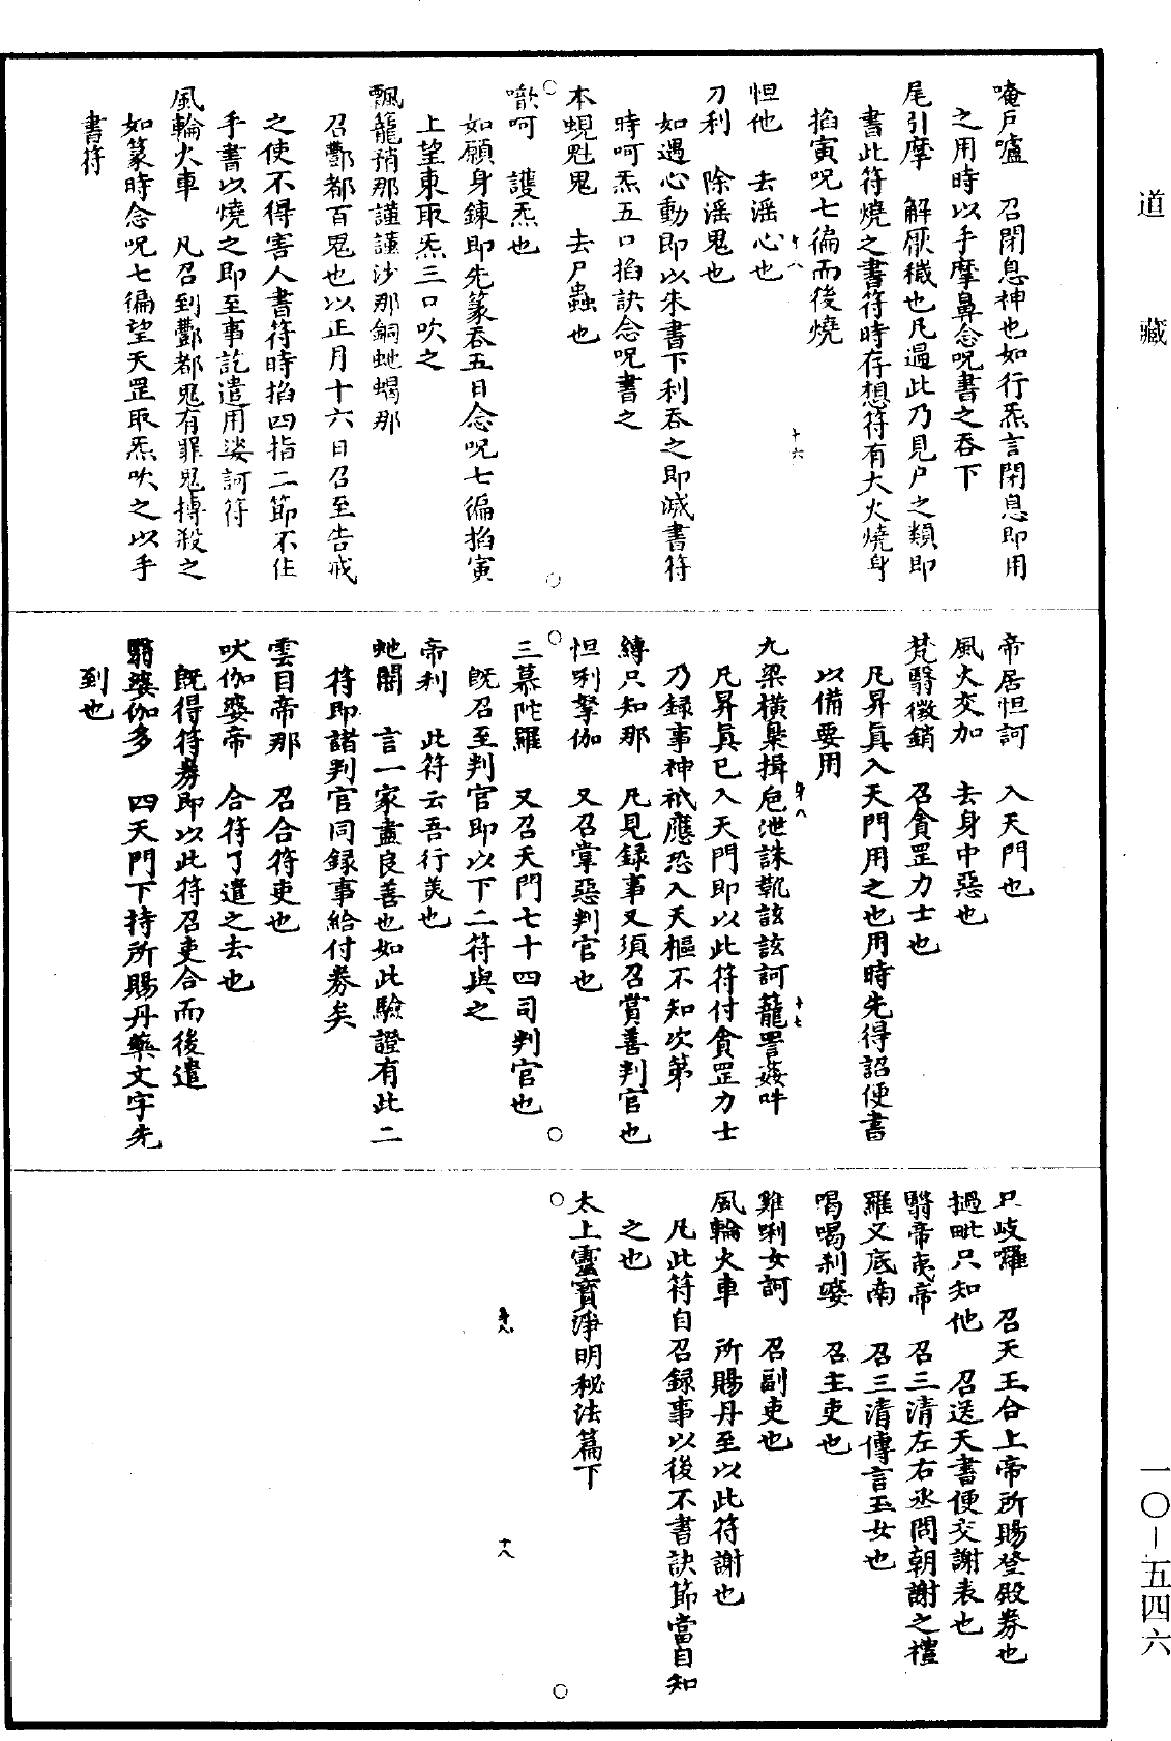 道藏
唵戶嚧　召閉息神也如行炁言閉息即用
之用時以手摩鼻念呪書之吞下
尾引摩　解厭穢也凡過此乃見尸之類即
書此符燒之書符時存想符有大火燒身
掐寅呪七徧而後燒
怛他　去滛心也
刀利　除滛鬼也
如遇心動即以朱書下利吞之即滅書符
時呵炁五口掐訣念呪書之
本蜆鬽鬼　去尸蟲也
歕呵　護炁也
如願身鍊即先篆吞五日念呪七徧掐寅
上望東取炁三口吹之
飄籠矟那謹謹沙那銅虵蝎那
召酆都百鬼也以正月十六日召至告戒
之使不得害人書符時掐四指二節不住
手書以燒之即至事訖遣用娑訶符
風輪火車　凡召到酆都鬼有罪鬼搏殺之
如篆時念呪七徧望天罡取炁吹之以手
書符
帝居怛訶　入天門也
風火交加　去身中惡也
梵翳徽銷　召貪罡力士也
凡昇眞入天門用之也用時先得詔便書
以備要用
九梁橫梟揖巵泄誅㲉該該訶籠詈蓊吽
凡昇眞已入天門即以此符付貪罡力士
乃録事神祇應恐入天樞不知次第
縛只知那　凡見録事又須召賞善判官也
怛唎拏伽　又召掌惡判官也
三慕陀羅　又召天門七十四司判官也
既召至判官即以下二符與之
帝利　此符云吾行美也
虵閣　言一家盡良善也如此驗證有此二
符即諸判官同録事給付券矣
雲目帝那　召合符吏也
吠伽婆帝　合符了遣之去也
既得符券即以此符召吏合而後遣
翳婆伽多　四天門下持所賜丹藥文字先
到也
只岐囉　召天王合上帝所賜登殿券也
摁毗只知他　召送天書便交謝表也
翳帝夷帝　召三清左右丞問朝謝之禮
羅又底南　召三清傳言玉女也
喝喝剎婆　召主吏也
難唎女訶　召副吏也
風輪火車　所賜丹至以此符謝也
凡此符自召録事以後不書訣節當自知
之也
太上靈寳淨明秘法篇下
十六
十七
十八
一〇—五四六